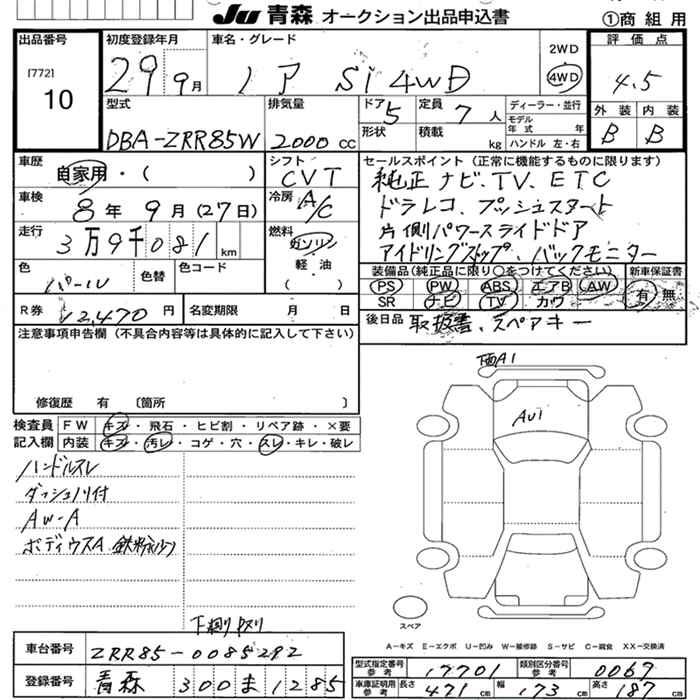 JU 青森 オークション出品申込書
①商組用
出品番号
[772]
10
初度登録年月
29 9月
車名・グレード
ノア Si 4WD
2WD
4WD
評価点
4.5
外装 内装
B B
型式
DBA-ZRR85W
排気量
2000 cc
ドア 5
形状
定員 7 人
積載 kg
ディーラー・並行
モデル年式 年式
ハンドル 左・右
車歴
自家用・( )
シフト
CVT
車検
8年 9月(27日)
冷房
A/C
走行
3万9千081km
燃料
ガソリン
軽・油
( )
色
パール
色替
色コード
R券 12,470 円
名変期限 月 日
セールスポイント(正常に機能するものに限ります)
純正ナビ、TV、ETC
ドラレコ、プッシュスタート
片側パワースライドドア
アイドリングストップ、バックモニター
装備品(純正品に限り○をつけてください)
新車保証書
PS PW ABS エアB AW
SR ナビ TV カワ
有 無
後日品 取扱書、スペアキー
注意事項申告欄(不具合内容等は具体的に記入して下さい)
修復歴 有 〔箇所 〕
検査員記入欄
FW キズ・飛石・ヒビ割・リペア跡・×要
内装 キズ・汚レ・コゲ・穴・スレ・キレ・破レ
ハンドルスレ
ダッシュノリ付
AW-A
ボディウスA 鉄粉
A1
AU1
スペア
A-キズ E-エクボ U-凹み W-補修跡 S-サビ C-腐食 XX-交換済
車台番号 ZRR85-0085292
登録番号 青森 300 ま 1285
型式指定番号 参考 17701
類別区分番号 参考 0067
車庫証明用 参考 長さ 471 cm 幅 173 cm 高さ 187 cm